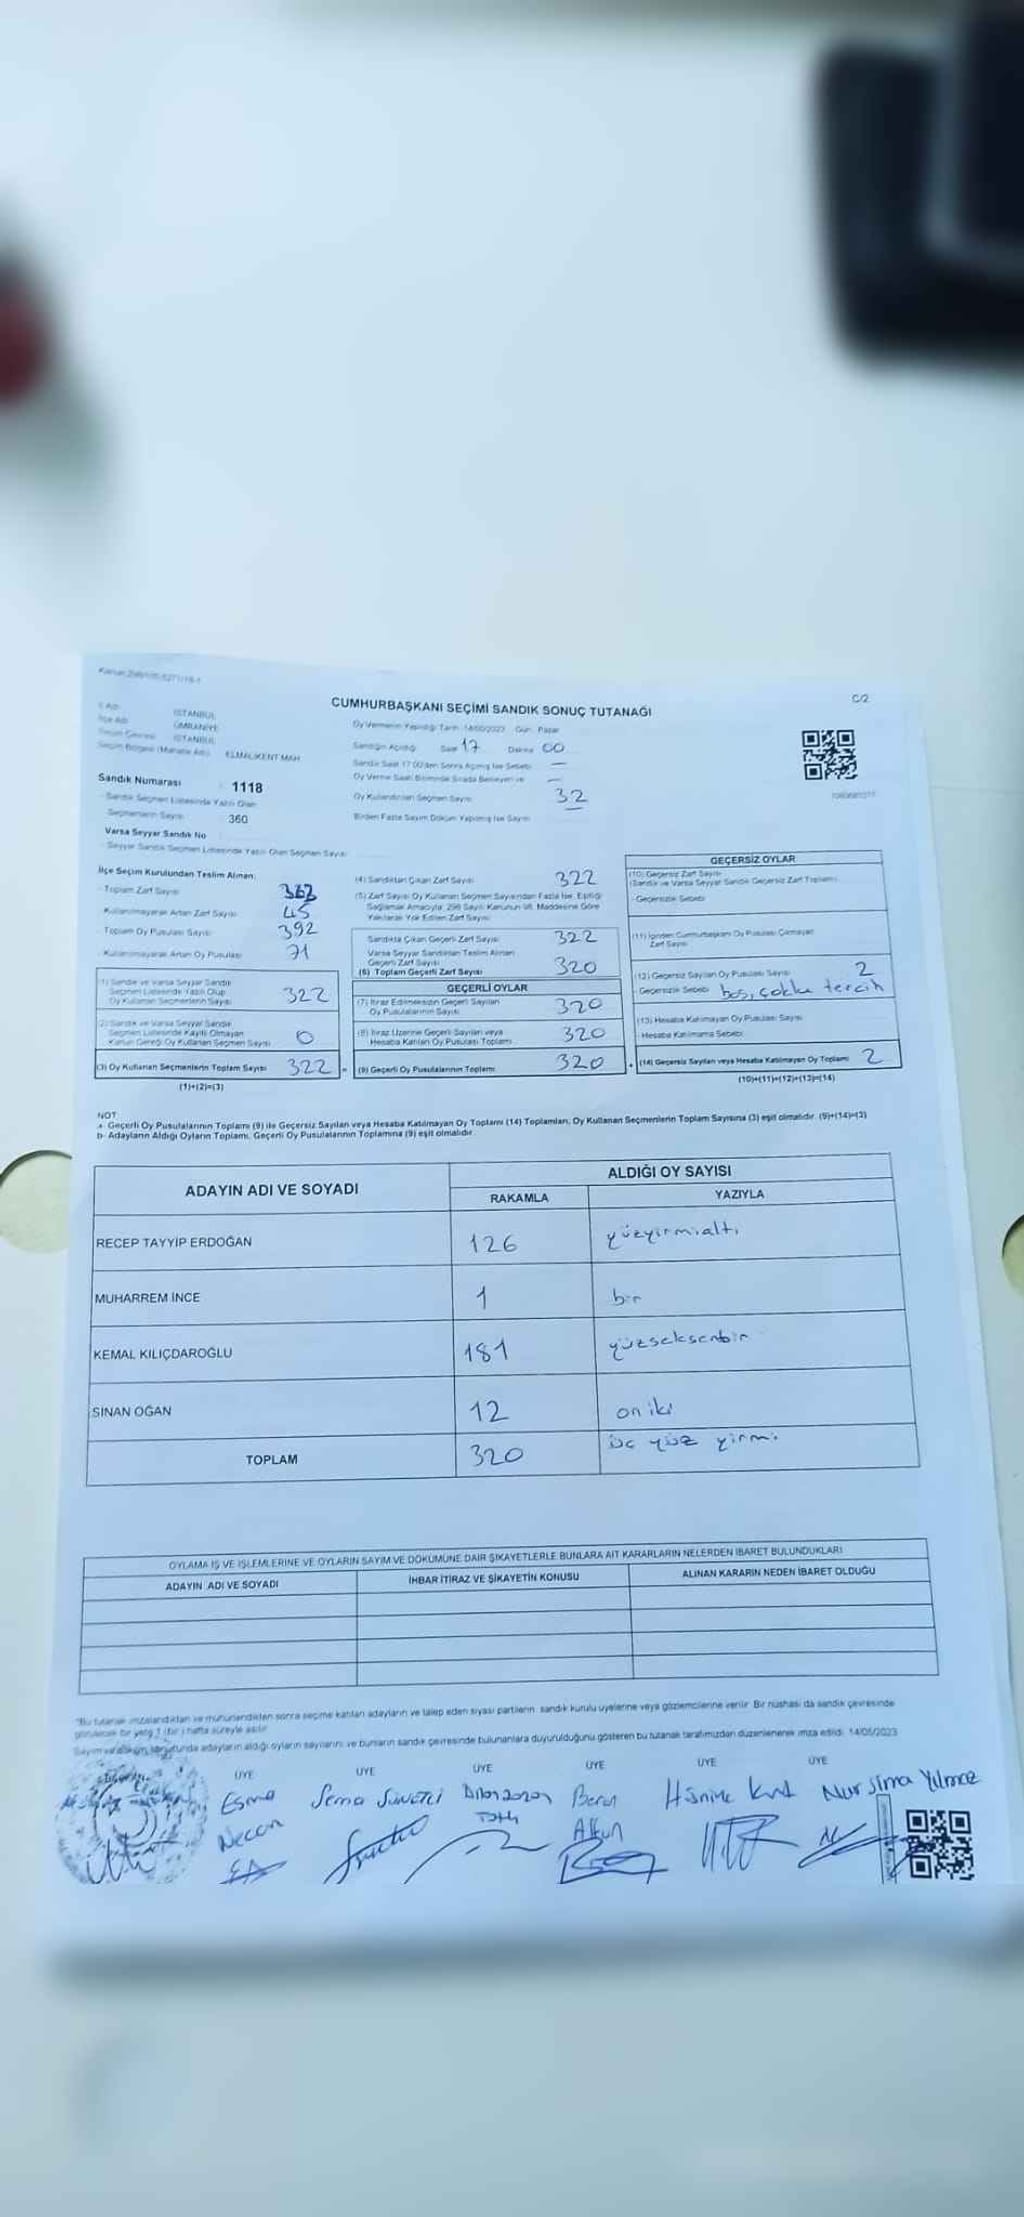 C/2
CUMHURBAŞKANI SEÇİMİ SANDIK SONUÇ TUTANAĞI
İl Adı İSTANBUL
İlçe Adı ÜMRANİYE
Seçim Çevresi İSTANBUL
Seçim Bölgesi (Mahalle Adı) ELMALIKENT MAH
Sandık Numarası 1118
Sandık Seçmen Listesinde Yazılı Olan
Seçmenlerin Sayısı 360
Varsa Seyyar Sandık No
Seyyar Sandık Seçmen Listesinde Yazılı Olan Seçmen Sayısı
Oy Vermenin Yapıldığı Tarih 14/05/2023 Gün Pazar
Sandığın Açıldığı Saat 17 Dakika 00
Sandık Saat 17.00'den Sonra Açılmış İse Sebebi —
Oy Verme Saati Bitiminde Sırada Bekleyen ve —
Oy Kullandırılan Seçmen Sayısı 32
Birden Fazla Sayım Döküm Yapılmış İse Sayısı
İlçe Seçim Kurulundan Teslim Alınan;
Toplam Zarf Sayısı
Kullanılmayarak Artan Zarf Sayısı 45
Toplam Oy Pusulası Sayısı 392
Kullanılmayarak Artan Oy Pusulası 71
(1) Sandık ve Varsa Seyyar Sandık
Seçmen Listesinde Yazılı Olup
Oy Kullanan Seçmenlerin Sayısı 322
(2) Sandık ve Varsa Seyyar Sandık
Seçmen Listesinde Kayıtlı Olmayan
Kanun Gereği Oy Kullanan Seçmen Sayısı 0
(3) Oy Kullanan Seçmenlerin Toplam Sayısı 322
(1)+(2)=(3)
(4) Sandıktan Çıkan Zarf Sayısı 322
(5) Zarf Sayısı Oy Kullanan Seçmen Sayısından Fazla İse, Eşitliği
Sağlamak Amacıyla, 298 Sayılı Kanunun 98. Maddesine Göre
Yakılarak Yok Edilen Zarf Sayısı
Sandıkta Çıkan Geçerli Zarf Sayısı 322
Varsa Seyyar Sandıktan Teslim Alınan
Geçerli Zarf Sayısı
(6) Toplam Geçerli Zarf Sayısı 320
GEÇERLİ OYLAR
(7) İtiraz Edilmeksizin Geçerli Sayılan
Oy Pusulalarının Sayısı 320
(8) İtiraz Üzerine Geçerli Sayılan veya
Hesaba Katılan Oy Pusulası Toplamı 320
(9) Geçerli Oy Pusulalarının Toplamı 320
GEÇERSİZ OYLAR
(10) Geçersiz Zarf Sayısı
(Sandık ve Varsa Seyyar Sandık Geçersiz Zarf Toplamı)
Geçersizlik Sebebi
(11) İçinden Cumhurbaşkanı Oy Pusulası Çıkmayan
Zarf Sayısı
(12) Geçersiz Sayılan Oy Pusulası Sayısı 2
Geçersizlik Sebebi boş, çoklu tercih
(13) Hesaba Katılmayan Oy Pusulası Sayısı
Hesaba Katılmama Sebebi
(14) Geçersiz Sayılan veya Hesaba Katılmayan Oy Toplamı 2
(10)+(11)+(12)+(13)=(14)
NOT
a- Geçerli Oy Pusulalarının Toplamı (9) ile Geçersiz Sayılan veya Hesaba Katılmayan Oy Toplamı (14) Toplamları, Oy Kullanan Seçmenlerin Toplam Sayısına (3) eşit olmalıdır. (9)+(14)=(3)
b- Adayların Aldığı Oyların Toplamı, Geçerli Oy Pusulalarının Toplamına (9) eşit olmalıdır.
ADAYIN ADI VE SOYADI ALDIĞI OY SAYISI
RAKAMLA YAZIYLA
RECEP TAYYİP ERDOĞAN 126 yüzyirmialtı
MUHARREM İNCE 1 bir
KEMAL KILIÇDAROĞLU 181 yüzseksenbir
SİNAN OĞAN 12 on iki
TOPLAM 320 üç yüz yirmi
OYLAMA İŞ VE İŞLEMLERİNE VE OYLARIN SAYIM VE DÖKÜMÜNE DAİR ŞİKAYETLERLE BUNLARA AİT KARARLARIN NELERDEN İBARET BULUNDUKLARI
ADAYIN ADI VE SOYADI İHBAR İTİRAZ VE ŞİKAYETİN KONUSU ALINAN KARARIN NEDEN İBARET OLDUĞU
"Bu tutanak imzalandıktan ve mühürlendikten sonra seçime katılan adayların ve talep eden siyasi partilerin sandık kurulu üyelerine veya gözlemcilerine verilir. Bir nüshası da sandık çevresinde
görülecek bir yere 1 (bir) hafta süreyle asılır
Sayım ve döküm sonucunda adayların aldığı oyların sayılarını ve bunların sandık çevresinde bulunanlara duyurulduğunu gösteren bu tutanak tarafımızdan düzenlenerek imza edildi. 14/05/2023
ÜYE ÜYE ÜYE ÜYE ÜYE ÜYE
Esma Sema Beran Hüsniye Kurt Nur Sima Yılmaz